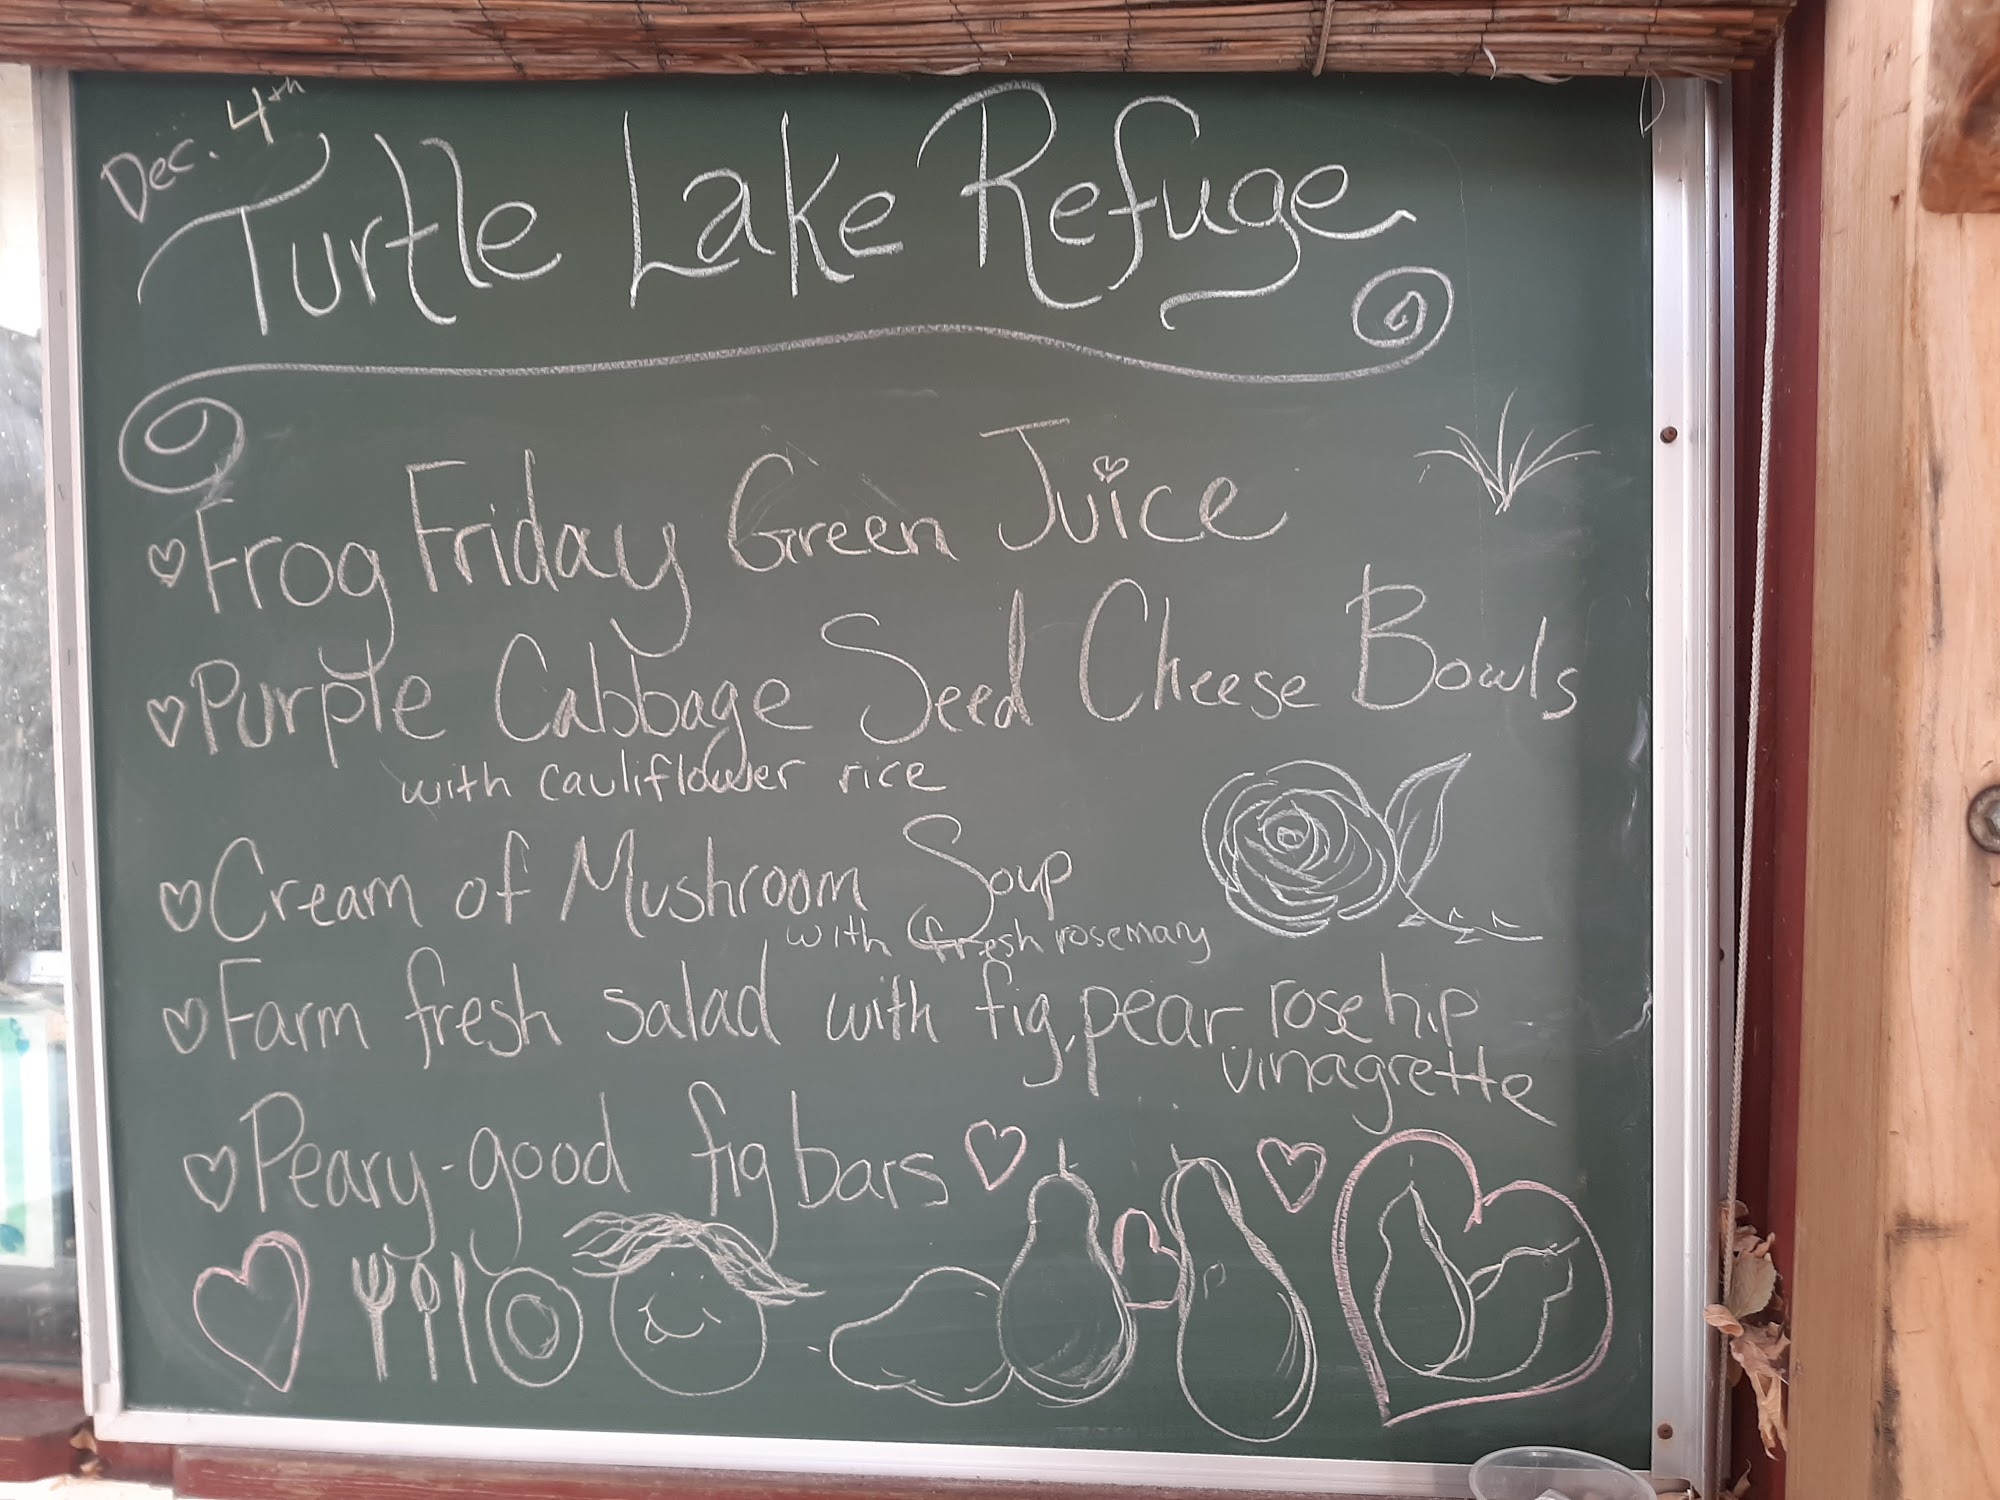 Dec. 4th
Turtle Lake Refuge
Frog Friday Green Juice
Purple Cabbage Seed Cheese Bowls
with cauliflower rice
Cream of Mushroom Soup
with fresh rosemary
Farm fresh salad with fig, pear rosehip
vinagrette
Peary-good fig bars